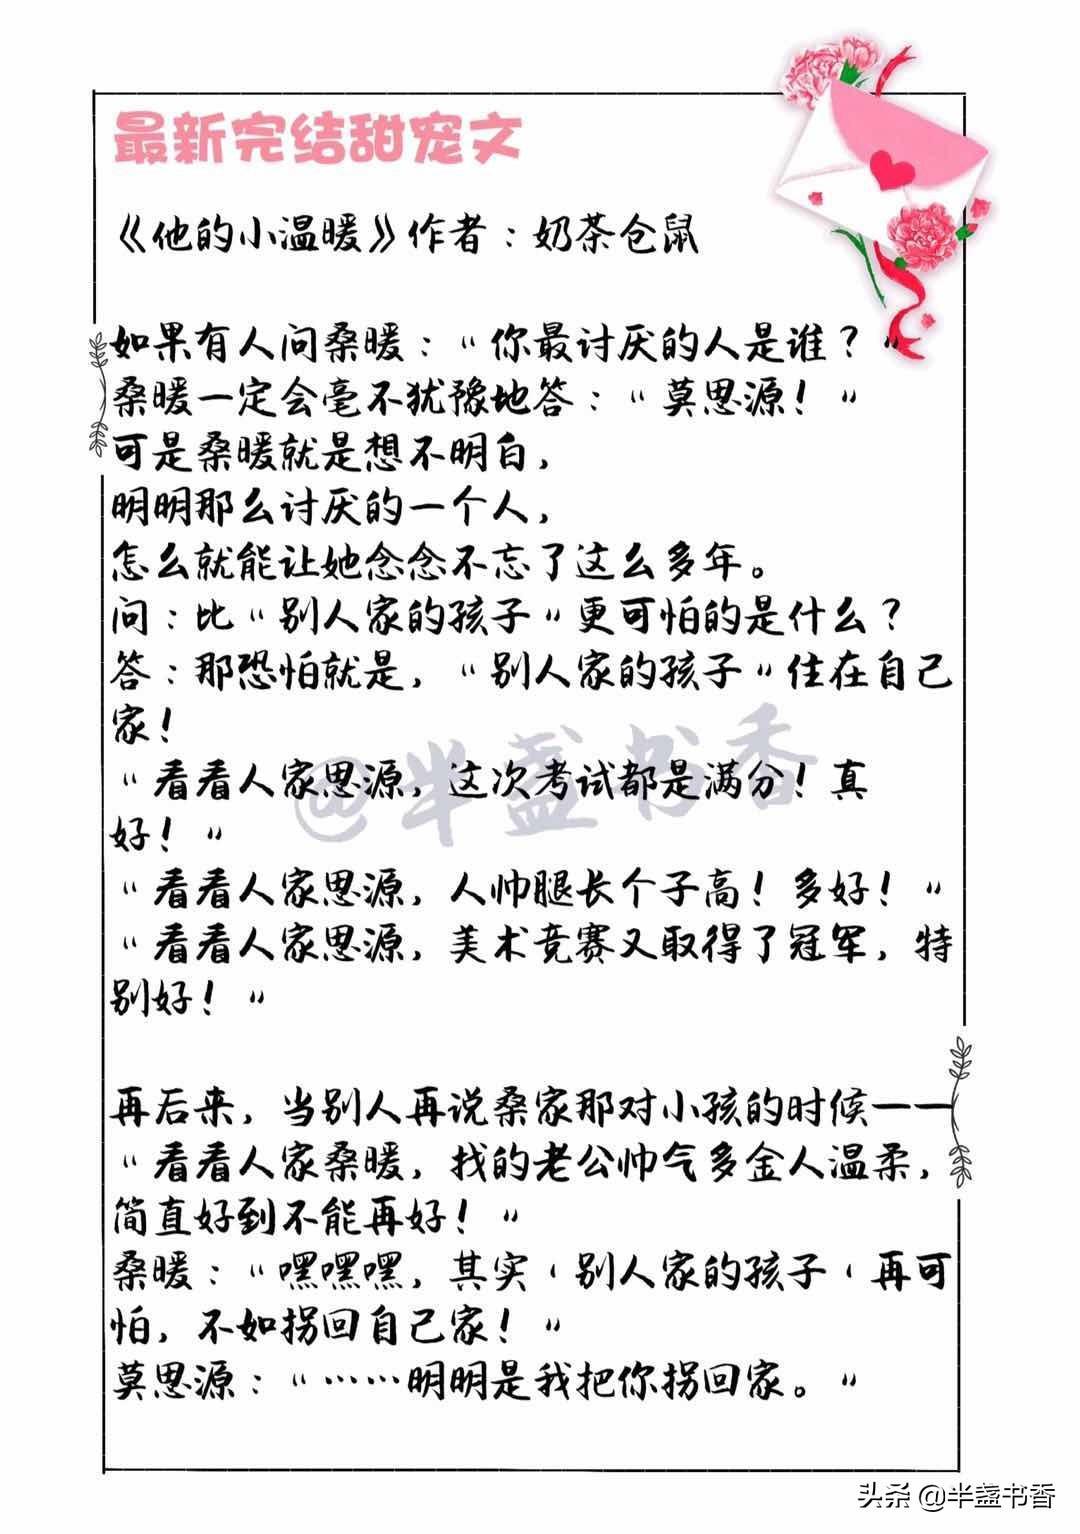 最新完结甜宠文
《他的小温暖》作者：奶茶仓鼠
如果有人问桑暖：“你最讨厌的人是谁？”
桑暖一定会毫不犹豫地答：“莫思源！”
可是桑暖就是想不明白，
明明那么讨厌的一个人，
怎么就能让她念念不忘了这么多年。
问：比“别人家的孩子”更可怕的是什么？
答：那恐怕就是，“别人家的孩子”住在自己
家！
“看看人家思源，这次考试都是满分！真
好！”
“看看人家思源，人帅腿长个子高！多好！”
“看看人家思源，美术竞赛又取得了冠军，特
别好！”
再后来，当别人再说桑家那对小孩的时候——
“看看人家桑暖，找的老公帅气多金人温柔，
简直好到不能再好！”
桑暖：“嘿嘿嘿，其实‘别人家的孩子’再可
怕，不如拐回自己家！”
莫思源：“……明明是我把你拐回家。”
@半盏书香
头条 @半盏书香